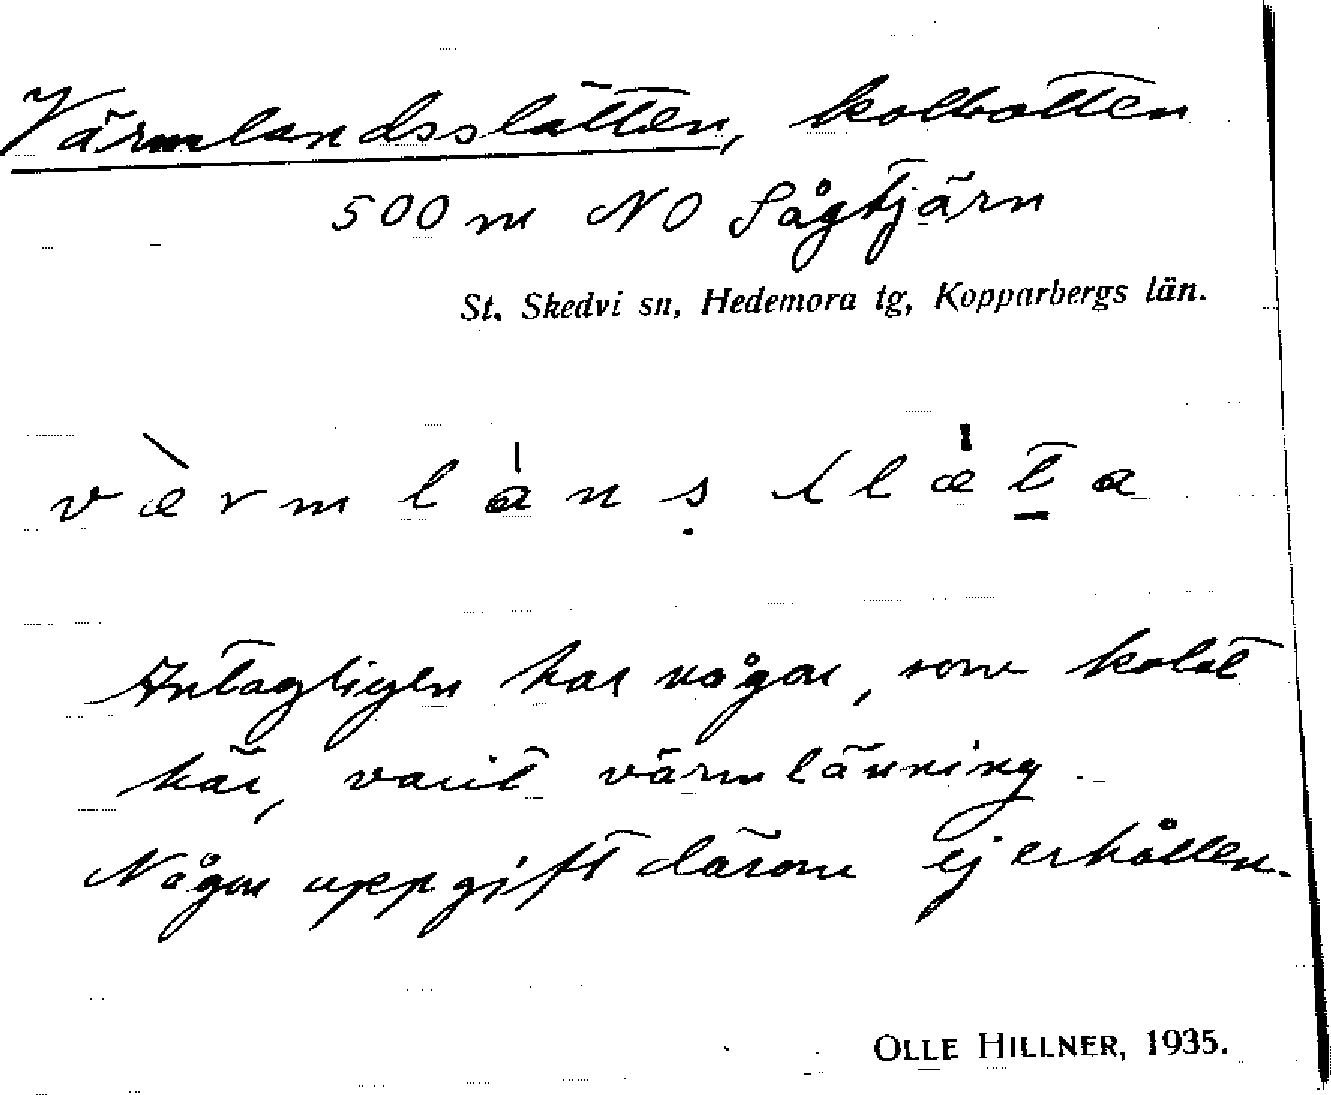 Värmlandsslätten, kolbotten
500 m NO Sågtjärn
St. Skedvi sn, Hedemora tg, Kopparbergs län.
væ̀rmlànsṣlæ̍t̠a
Antagligen har någon, som kolat
här, varit värmlänning.
Någon uppgift därom ej erhållen.
OLLE HILLNER, 1935.